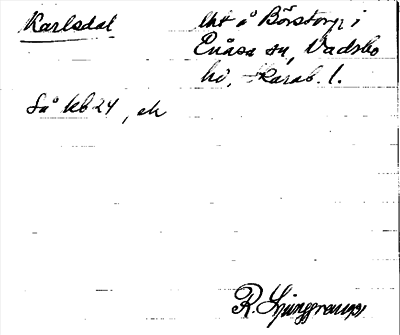 Karlsdal
lht å Börstorp i
Enåsa sn, Vadsbo
hd, Skarab. l.
Så kb 24, ek
R. Ljunggren